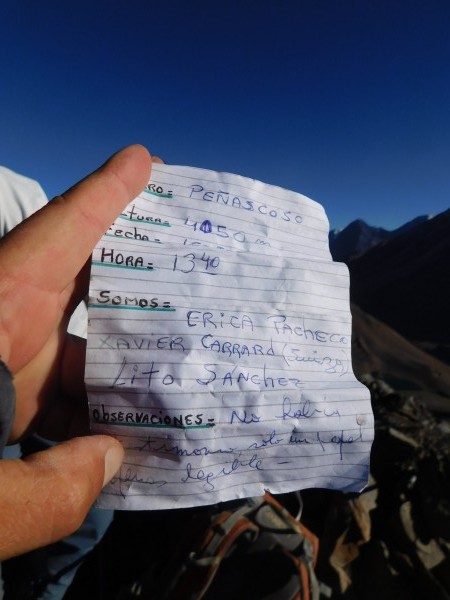 RO= PEÑASCOSO
TURA= 4050 m
FECHA=
HORA= 13 40
SOMOS=
ERICA PACHECO
XAVIER CARRARD (Suiza)
LITO SÁNCHEZ
OBSERVACIONES= No había
testimonio, solo un papel
apenas legible -